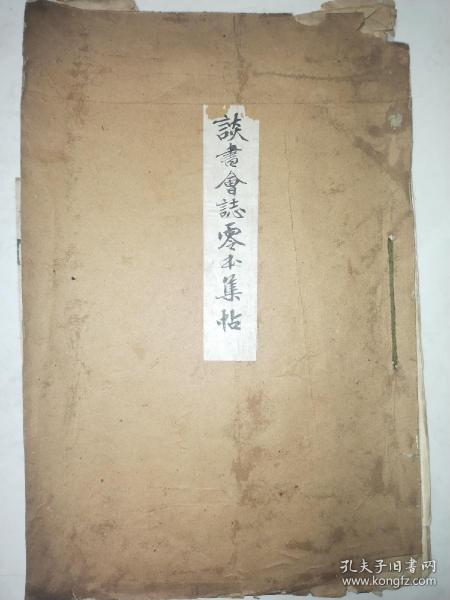 談書會誌零本集帖
孔夫子旧书网
www.kongfz.com